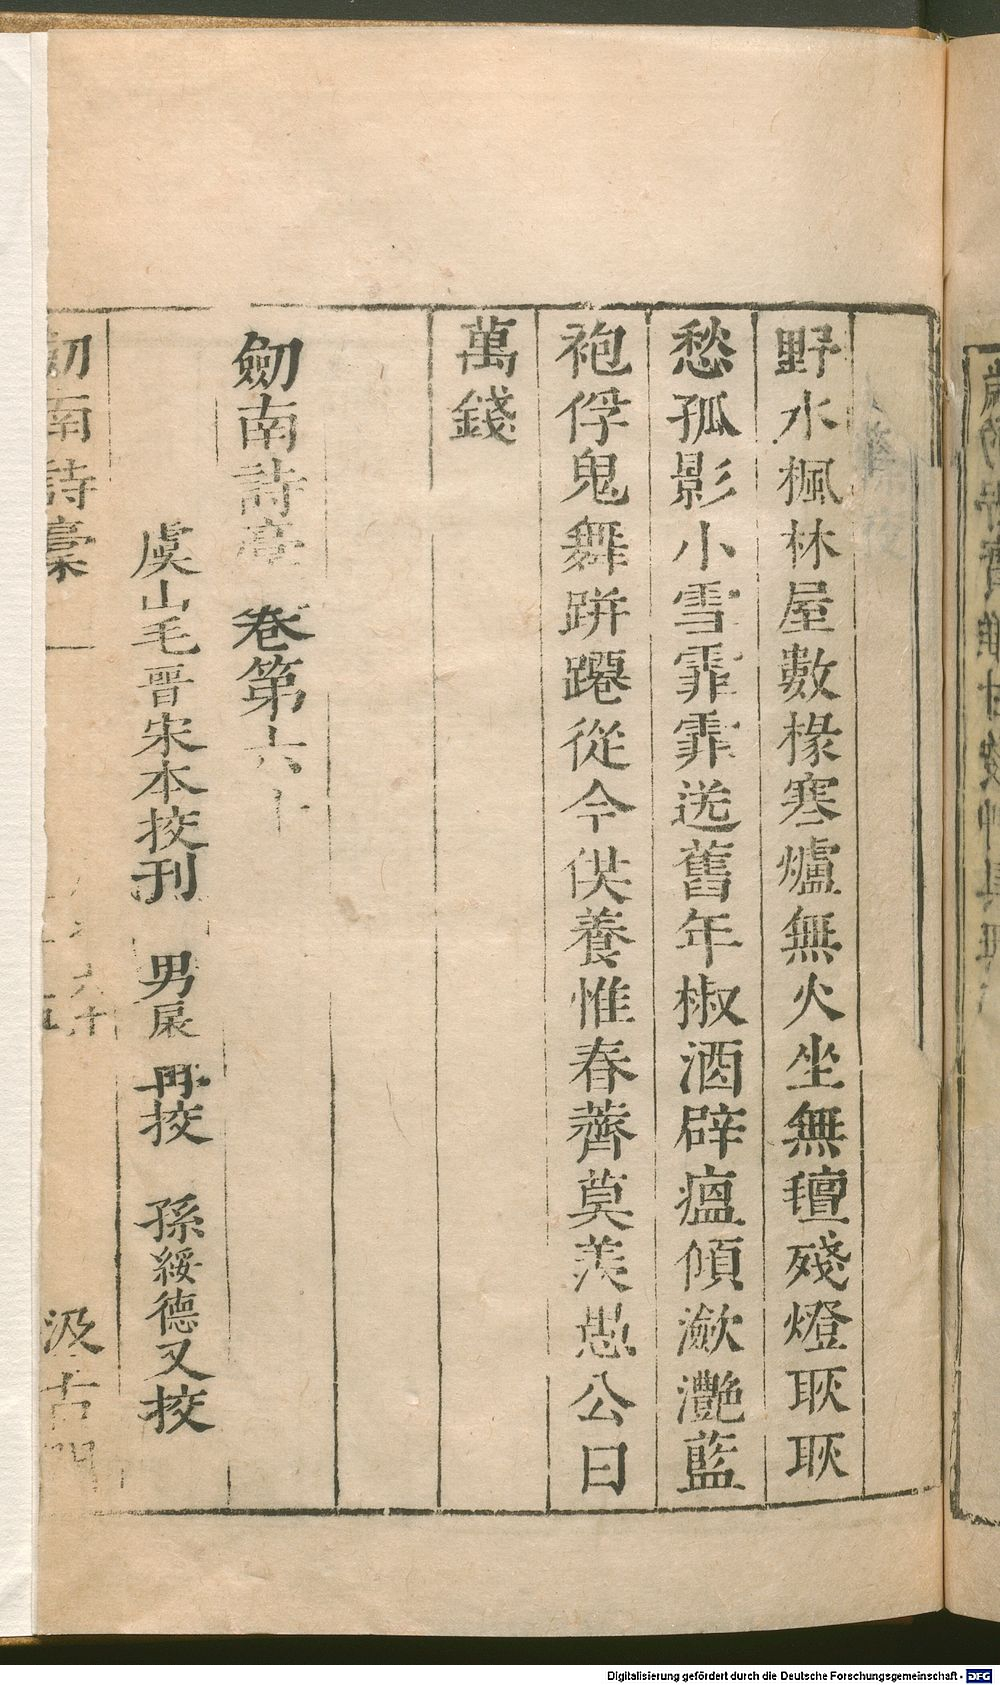 除夜
野水楓林屋數椽寒爐無火坐無氊殘燈耿耿
愁孤影小雪霏霏送舊年椒酒辟瘟傾瀲灩藍
袍俘鬼舞跰𨇤從今供養惟春薺莫羨愚公日
萬錢
劒南詩稾卷第六十
虞山毛晉宋本挍刋 男扆再挍 孫綏德又挍
劒南詩稾 卷六十 汲古閣
Digitalisierung gefördert durch die Deutsche Forschungsgemeinschaft - DFG